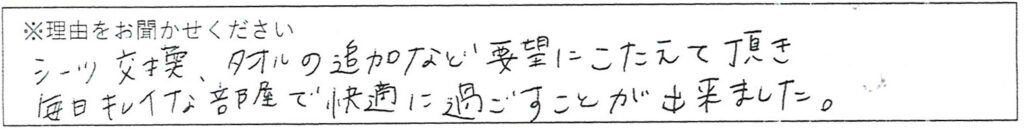 ※理由をお聞かせください
シーツ交換、タオルの追加など要望にこたえて頂き
毎日キレイな部屋で快適に過ごすことが出来ました。